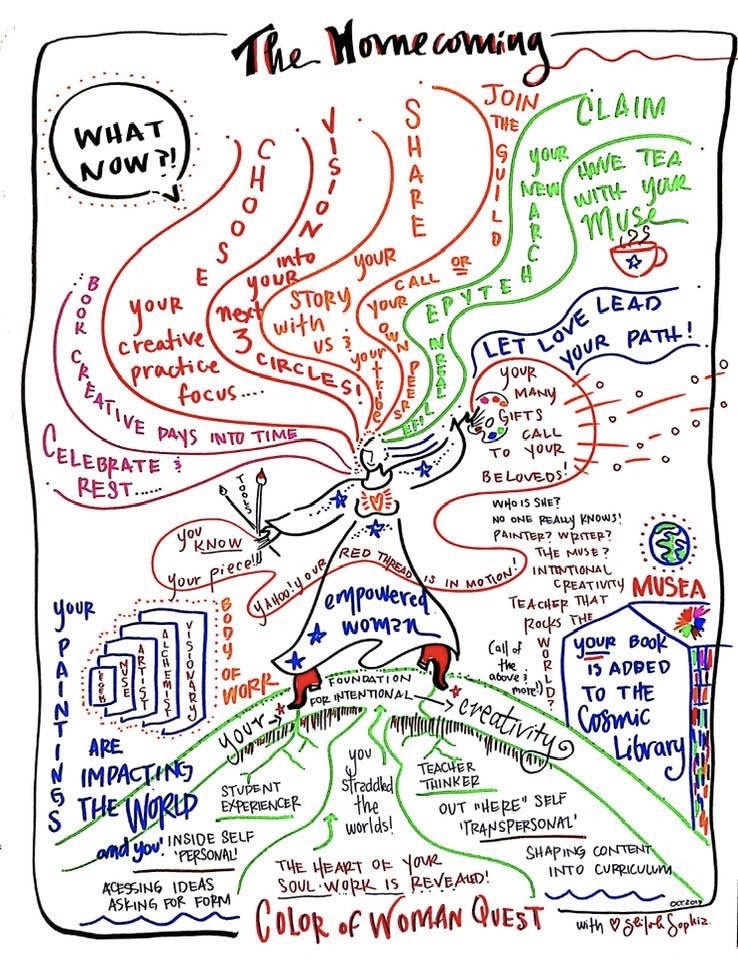 The Homecoming
WHAT
NOW?!
CHOOSE
your
creative
practice
focus....
VISION
into
your
next
3
CIRCLES!
SHARE
your
STORY
with
us &
your tribe
JOIN
THE
GUILD
OR
CALL
YOUR
OWN
PEERS
CLAIM
your
NEW
ARCHETYPE
HAVE TEA
WITH YOUR
Muse
LET LOVE LEAD
YOUR PATH!
BOOK CREATIVE DAYS INTO TIME
CELEBRATE &
REST.....
TOOLS
your
MANY
GIFTS
CALL
TO YOUR
BELOVEDS!
you
KNOW
your piece!!
YAHOO! YOUR RED THREAD IS IN MOTION!
WHO IS SHE?
NO ONE REALLY KNOWS!
PAINTER? WRITER?
THE MUSE?
INTENTIONAL
CREATIVITY
TEACHER THAT
ROCKS THE
WORLD?
(all of
the
above &
more!)
MUSEA
YOUR BOOK
IS ADDED
TO THE
Cosmic
Library
empowered
woman
YOUR
PAINTINGS
MUSE
ARTIST
ALCHEMIST
VISIONARY
BODY
OF
WORK
ARE
IMPACTING
THE WORLD
and you!
FOUNDATION
FOR INTENTIONAL
your
creativity
STUDENT
EXPERIENCER
you
straddled
the
worlds!
TEACHER
THINKER
INSIDE SELF
'PERSONAL'
OUT "HERE" SELF
'TRANSPERSONAL'
ACESSING IDEAS
ASKING FOR FORM
THE HEART OF YOUR
SOUL·WORK IS REVEALED!
SHAPING CONTENT
INTO CURRICULUM
COLOR OF WOMAN QUEST
with
OCT.2017